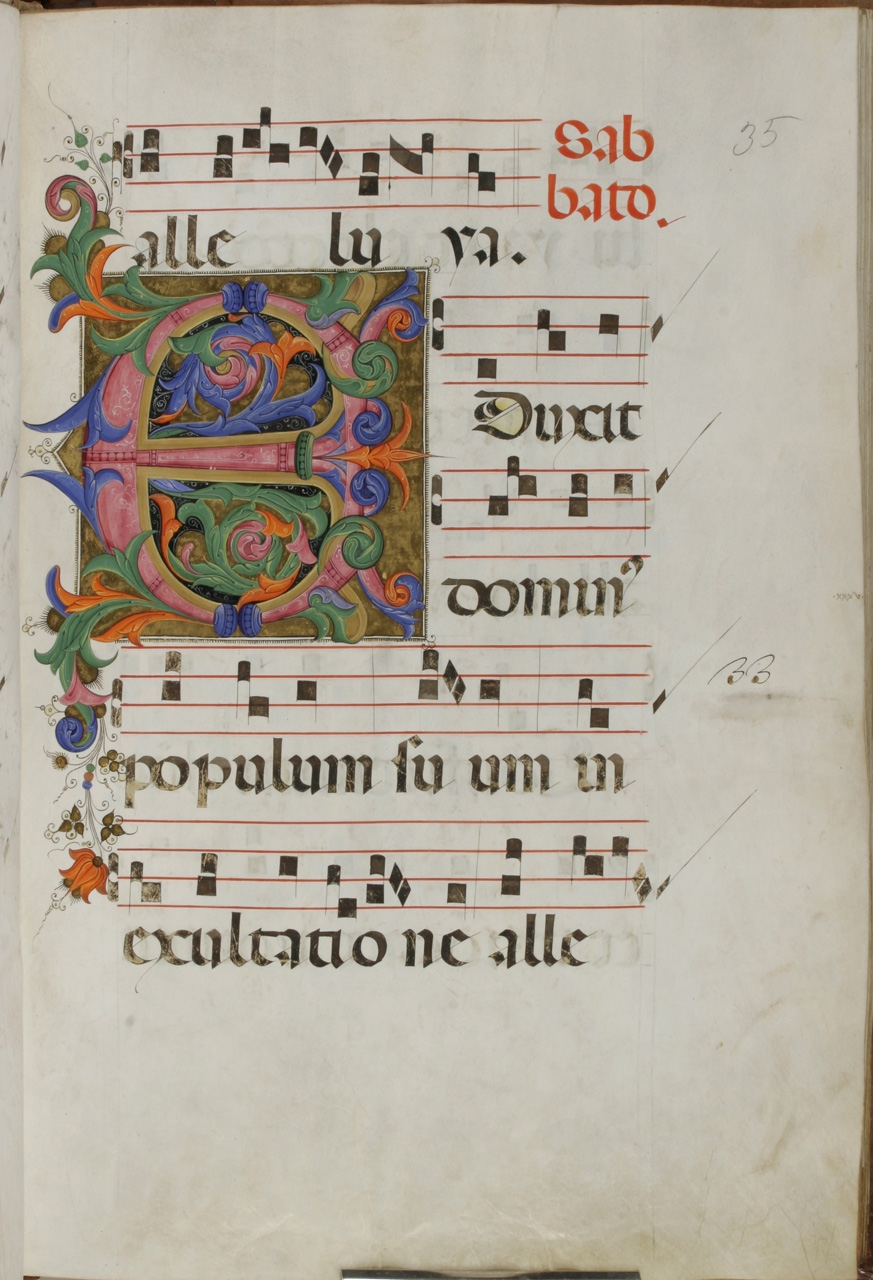 35
Sab
bato.
alle lu ya.
EDuxit
dominꝰ
populum ſu um in
33
exultatio ne alle